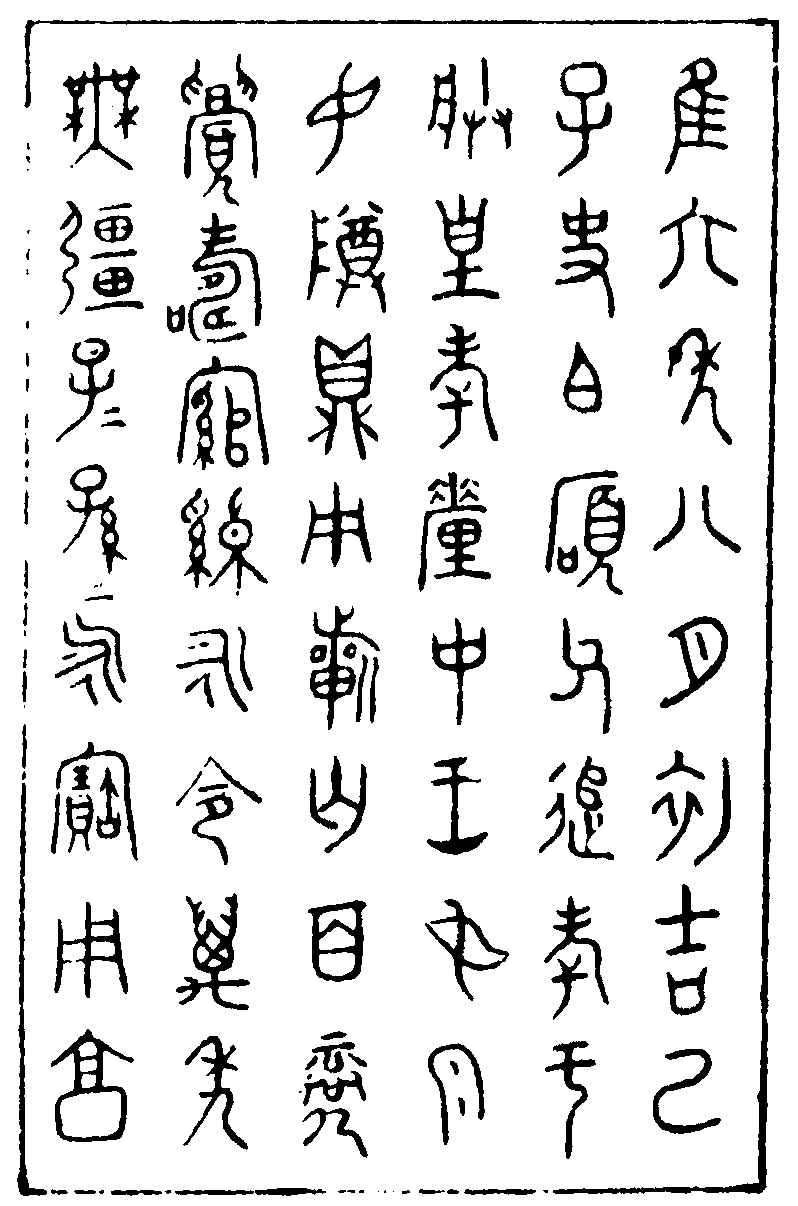 隹六年八月初吉己
子史白碩父追孝于
朕皇考釐中王母泉
母尊鼎用祈匄百彔
眉壽綰綽永令萬年
無疆子=孫=永寶用享